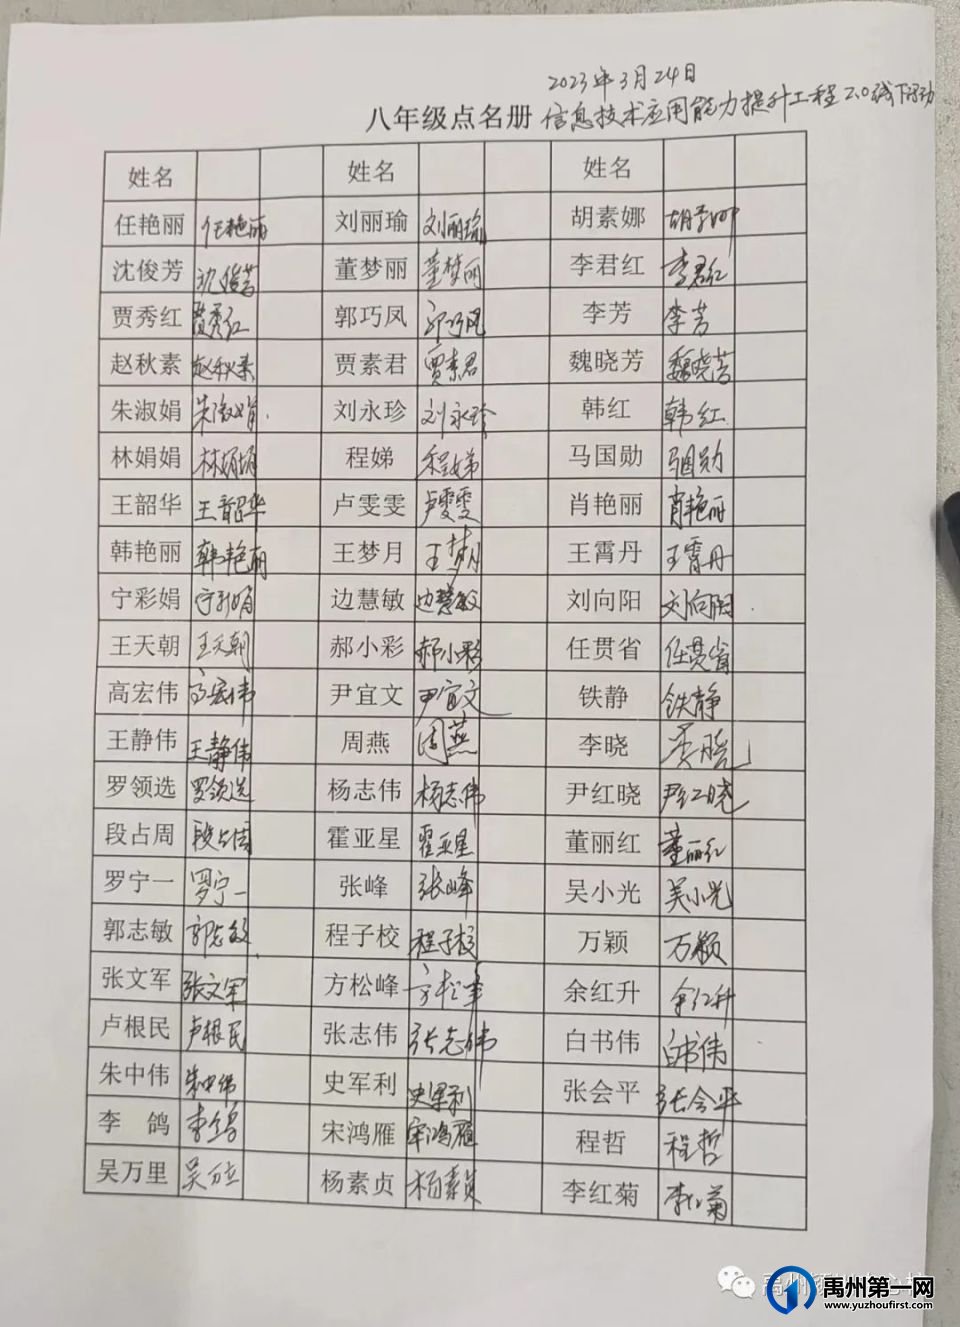 2023年3月24日
八年级点名册 信息技术应用能力提升工程2.0线下活动
姓名 姓名 姓名
任艳丽 任艳丽 刘丽瑜 刘丽瑜 胡素娜 胡素娜
沈俊芳 沈俊芳 董梦丽 董梦丽 李君红 李君红
贾秀红 贾秀红 郭巧凤 郭巧凤 李芳 李芳
赵秋素 赵秋素 贾素君 贾素君 魏晓芳 魏晓芳
朱淑娟 朱淑娟 刘永珍 刘永珍 韩红 韩红
林娟娟 林娟娟 程娣 程娣 马国勋 马国勋
王韶华 王韶华 卢雯雯 卢雯雯 肖艳丽 肖艳丽
韩艳丽 韩艳丽 王梦月 王梦月 王霄丹 王霄丹
宁彩娟 宁彩娟 边慧敏 边慧敏 刘向阳 刘向阳
王天朝 王天朝 郝小彩 郝小彩 任贯省 任贯省
高宏伟 高宏伟 尹宜文 尹宜文 铁静 铁静
王静伟 王静伟 周燕 周燕 李晓 李晓
罗领选 罗领选 杨志伟 杨志伟 尹红晓 尹红晓
段占周 段占周 霍亚星 霍亚星 董丽红 董丽红
罗宁一 罗宁一 张峰 张峰 吴小光 吴小光
郭志敏 郭志敏 程子校 程子校 万颖 万颖
张文军 张文军 方松峰 方松峰 余红升 余红升
卢根民 卢根民 张志伟 张志伟 白书伟 白书伟
朱中伟 朱中伟 史军利 史军利 张会平 张会平
李 鸽 李鸽 宋鸿雁 宋鸿雁 程哲 程哲
吴万里 吴万里 杨素贞 杨素贞 李红菊 李红菊
禹州
禹州第一网
www.yuzhoufirst.com